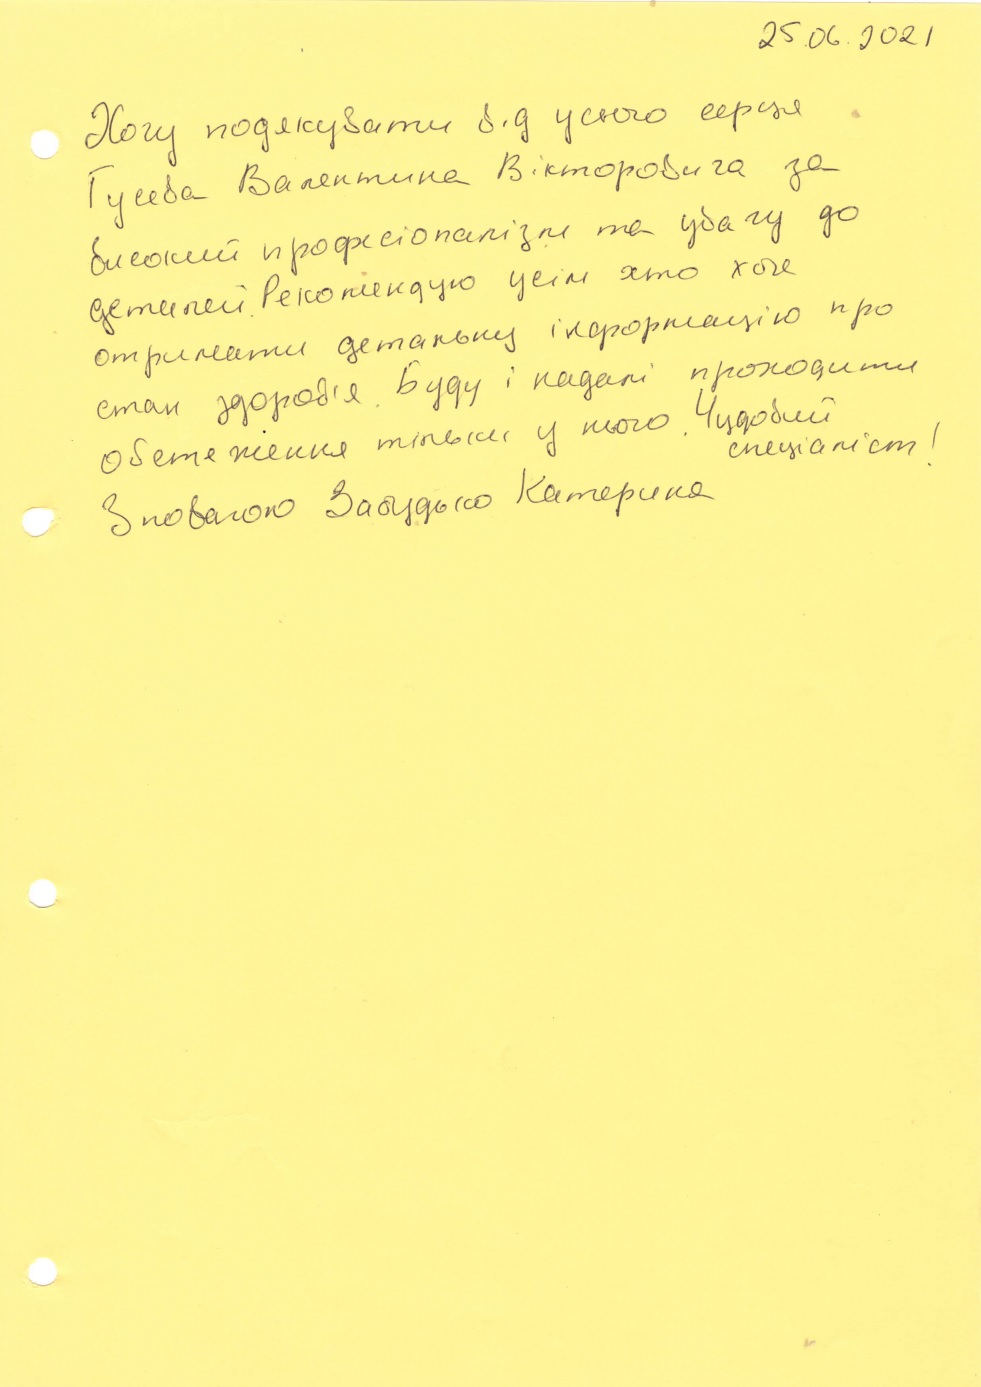 25.06.2021
Хочу подякувати від усього серця
Гусєва Валентина Вікторовича за
високий професіоналізм та увагу до
деталей. Рекомендую усім хто хоче
отримати детальну інформацію про
стан здоров'я. Буду і надалі проходити
обстеження тільки у нього. Чудовий
спеціаліст!
З повагою Катерина